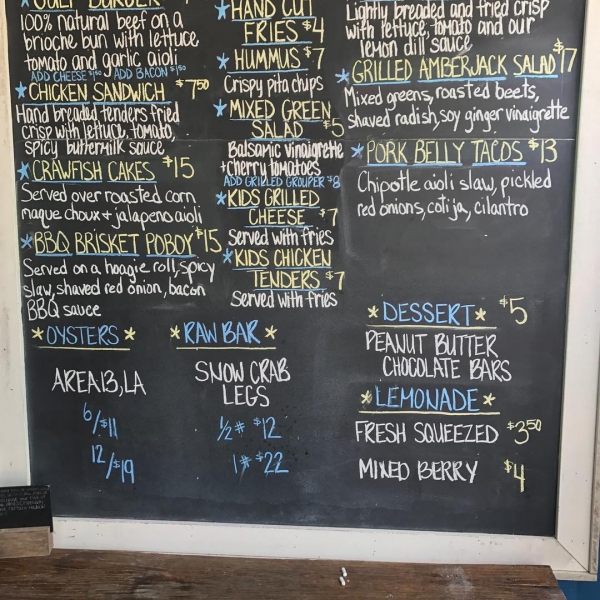 GULF BURGER
100% natural beef on a
brioche bun with lettuce
tomato and garlic aioli
ADD CHEESE $1.50 ADD BACON $1.50
CHICKEN SANDWICH $7.50
Hand breaded tenders fried
crisp with lettuce, tomato,
spicy buttermilk sauce
CRAWFISH CAKES $15
Served over roasted corn
maque choux + jalapeno aioli
BBQ BRISKET POBOY $15
Served on a hoagie roll, spicy
slaw, shaved red onion, bacon
BBQ sauce
HAND CUT
FRIES $4
HUMMUS $7
Crispy pita chips
MIXED GREEN
SALAD $5
Balsamic vinaigrette
+cherry tomatoes
ADD GRILLED GROUPER $8
KIDS GRILLED
CHEESE $7
Served with fries
KIDS CHICKEN
TENDERS $7
Served with fries
Lightly breaded and fried crisp
with lettuce, tomato and our
lemon dill sauce
GRILLED AMBERJACK SALAD $17
Mixed greens, roasted beets,
shaved radish, soy ginger vinaigrette
PORK BELLY TACOS $13
Chipotle aioli slaw, pickled
red onions, cotija, cilantro
OYSTERS
AREA 13, LA
6/$11
12/$19
RAW BAR
SNOW CRAB
LEGS
1/2# $12
1# $22
DESSERT $5
PEANUT BUTTER
CHOCOLATE BARS
LEMONADE
FRESH SQUEEZED $3.50
MIXED BERRY $4